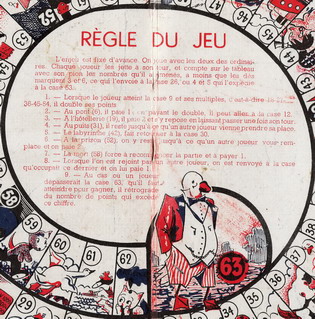 RÈGLE DU JEU
L'enjeu est fixé d'avance. On joue avec les deux dés ordinai-
res. Chaque joueur les jette à son tour, et compte sur le tableau
avec son pion les nombres qu'il a amenés, à moins que les dés
marquent 3 et 6, ce qui l'envoie à la case 26, ou 4 et 5 qui l'expédie
à la case 53.
1. — Lorsque le joueur atteint la case 9 et ses multiples, c'est-à-dire
36-45-54, il double ses points
2. — Au pont (6), il paie 1 en payant le double, il peut aller à la case 12.
3. — A l'hôtellerie (19), il paie et y repose en laissant passer une fois son tour
4. — Au puits (31), il reste jusqu'à ce qu'un autre joueur vienne prendre sa place.
5. — Le labyrinthe (42), fait retourner à la case 30.
6. — A la prison (52), on y reste jusqu'à ce qu'un autre joueur vous rem-
place et on paie
7. — La mort (58) force à recommencer la partie et à payer 1.
8. — Lorsque l'on est rejoint par un autre joueur, on est renvoyé à la case
qu'occupait ce dernier et on lui paie 1.
9. — Au cas où un joueur
dépasserait la case 63, qu'il faut
atteindre pour gagner, il rétrograde
du nombre de points qui excède
ce chiffre.
63
62
61
60
59
58
57
56
55
39
38
37
36
35
34